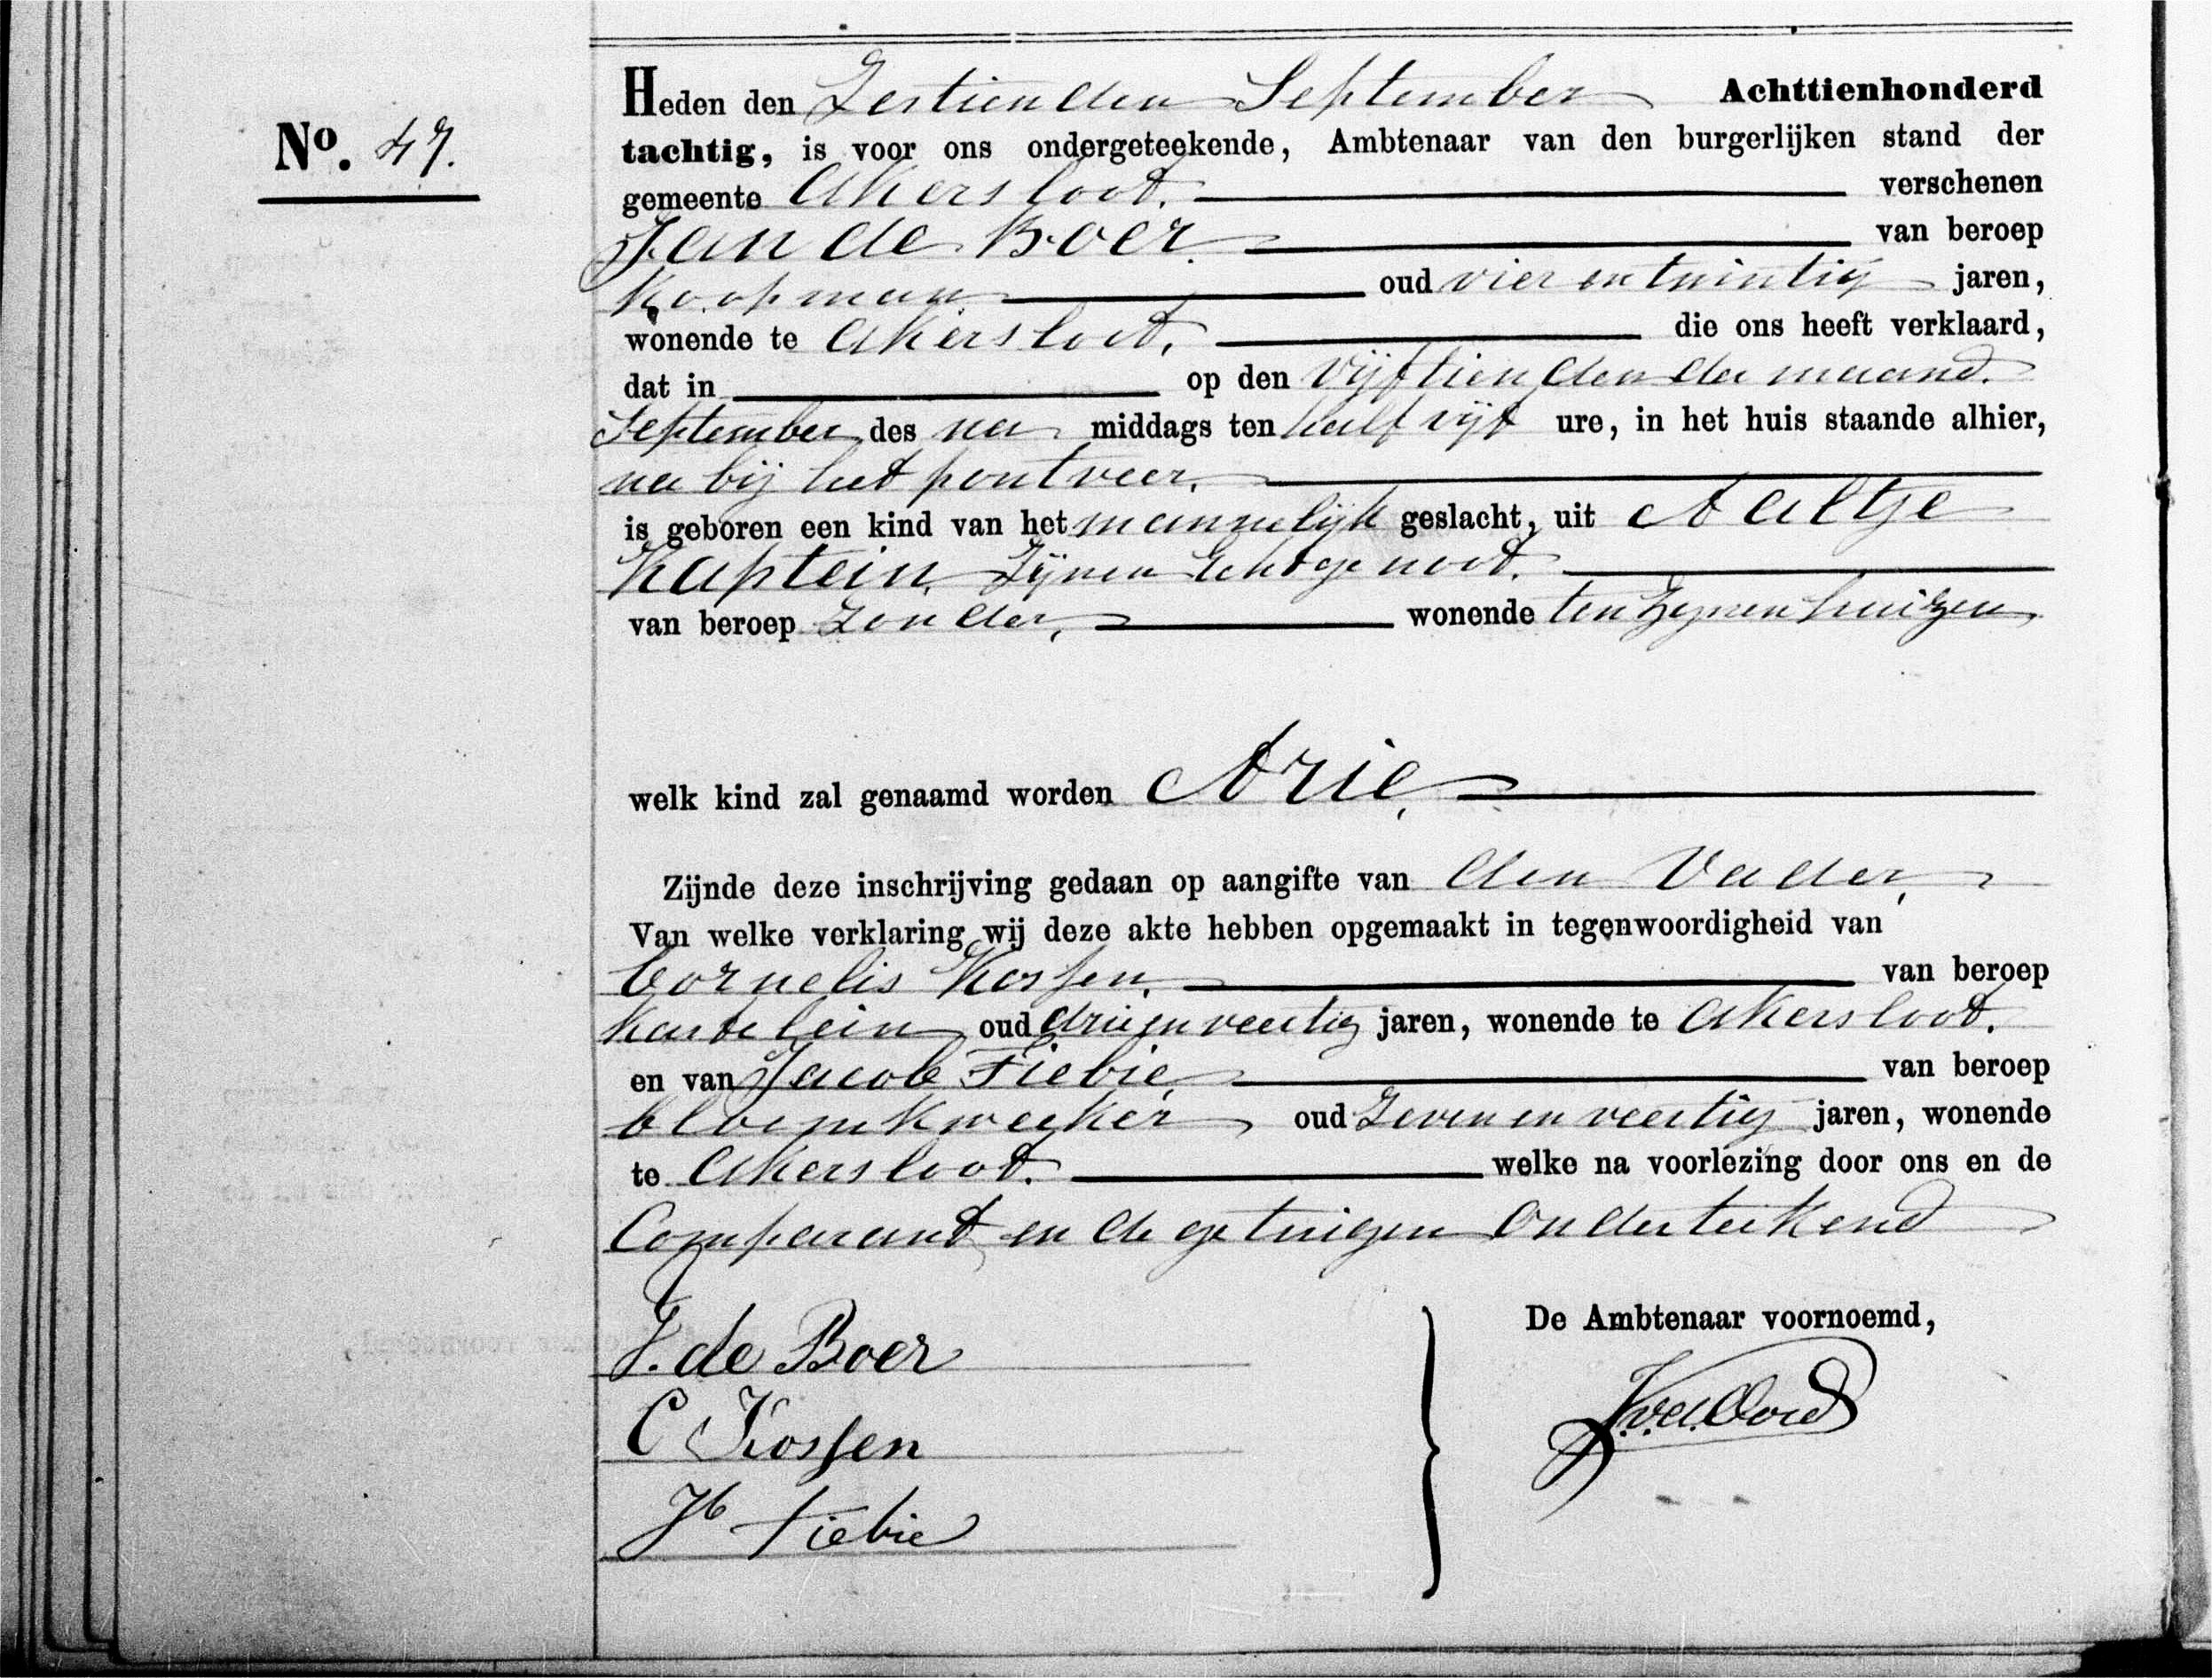 No. 47.
Heden den Zestienden September Achttienhonderd
tachtig, is voor ons ondergeteekende, Ambtenaar van den burgerlijken stand der
gemeente Akersloot. verschenen
Jan de Boer. van beroep
Koopman oud vier en twintig jaren,
wonende te Akersloot, die ons heeft verklaard,
dat in op den vijftienden der maand
September des na middags ten half vijf ure, in het huis staande alhier,
na bij het pontveer,
is geboren een kind van het mannelijk geslacht, uit Aaltje
Kaptein, Zijnen Echtgenoot.
van beroep Zonder, wonende ten Zijnen huizen
welk kind zal genaamd worden Arie,
Zijnde deze inschrijving gedaan op aangifte van den Vader,
Van welke verklaring wij deze akte hebben opgemaakt in tegenwoordigheid van
Cornelis Kossen, van beroep
Kastelein oud drieenveertig jaren, wonende te Akersloot.
en van Jacob Fiebie, van beroep
bloemkweeker oud Zeven en veertig jaren, wonende
te Akersloot. welke na voorlezing door ons en de
Comparant en de getuigen Onderteekend
De Ambtenaar voornoemd,
J. de Boer
C Kossen
Jb Fiebie